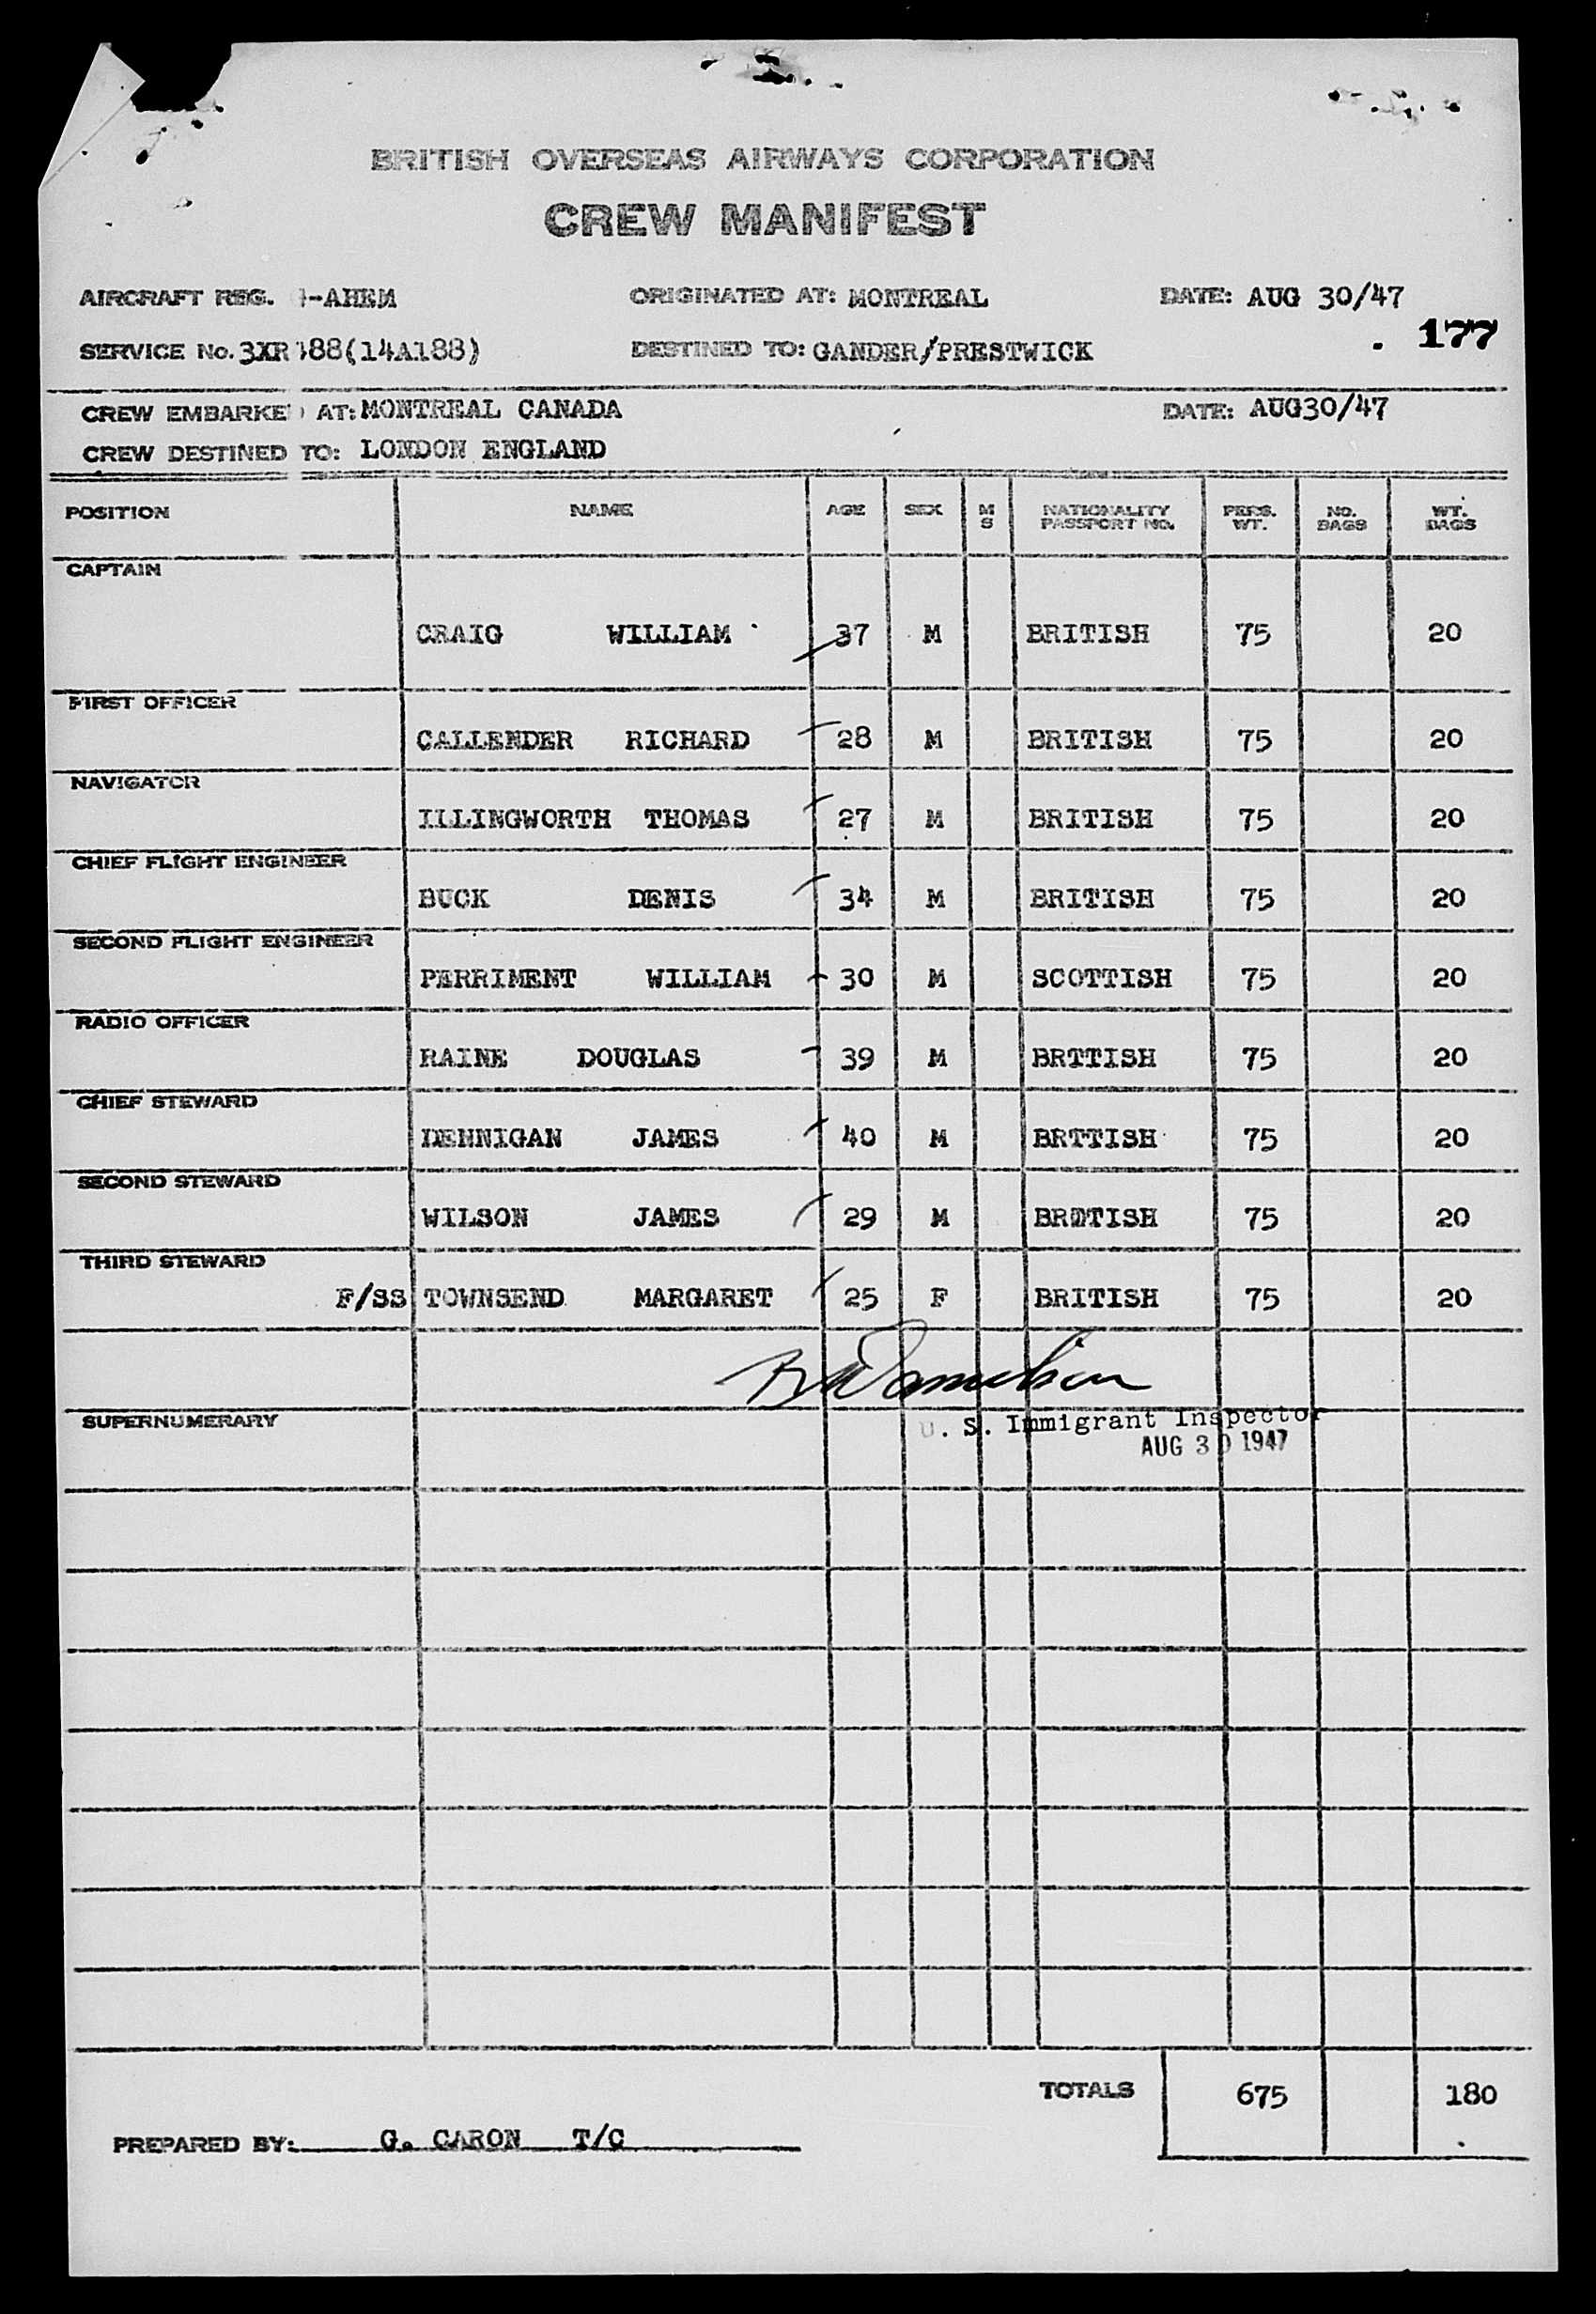 BRITISH OVERSEAS AIRWAYS CORPORATION
CREW MANIFEST
AIRCRAFT REG. -AHEM ORIGINATED AT: MONTREAL DATE: AUG 30/47
177
SERVICE No. 3XR 88(14A188) DESTINED TO: GANDER/PRESTWICK
CREW EMBARKE AT: MONTREAL CANADA DATE: AUG30/47
CREW DESTINED TO: LONDON ENGLAND
POSITION NAME AGE SEX M S NATIONALITY PASSPORT NO. PERS. WT. NO. BAGS WT. BAGS
CAPTAIN
CRAIG WILLIAM 37 M BRITISH 75 20
FIRST OFFICER
CALLENDER RICHARD 28 M BRITISH 75 20
NAVIGATOR
ILLINGWORTH THOMAS 27 M BRITISH 75 20
CHIEF FLIGHT ENGINEER
BUCK DENIS 34 M BRITISH 75 20
SECOND FLIGHT ENGINEER
PERRIMENT WILLIAM 30 M SCOTTISH 75 20
RADIO OFFICER
RAINE DOUGLAS 39 M BRTTISH 75 20
CHIEF STEWARD
DENNIGAN JAMES 40 M BRTTISH 75 20
SECOND STEWARD
WILSON JAMES 29 M BRITISH 75 20
THIRD STEWARD
F/SS TOWNSEND MARGARET 25 F BRITISH 75 20
SUPERNUMERARY
U. S. Immigrant Inspector
AUG 30 1947
TOTALS 675 180
PREPARED BY: G. CARON T/C